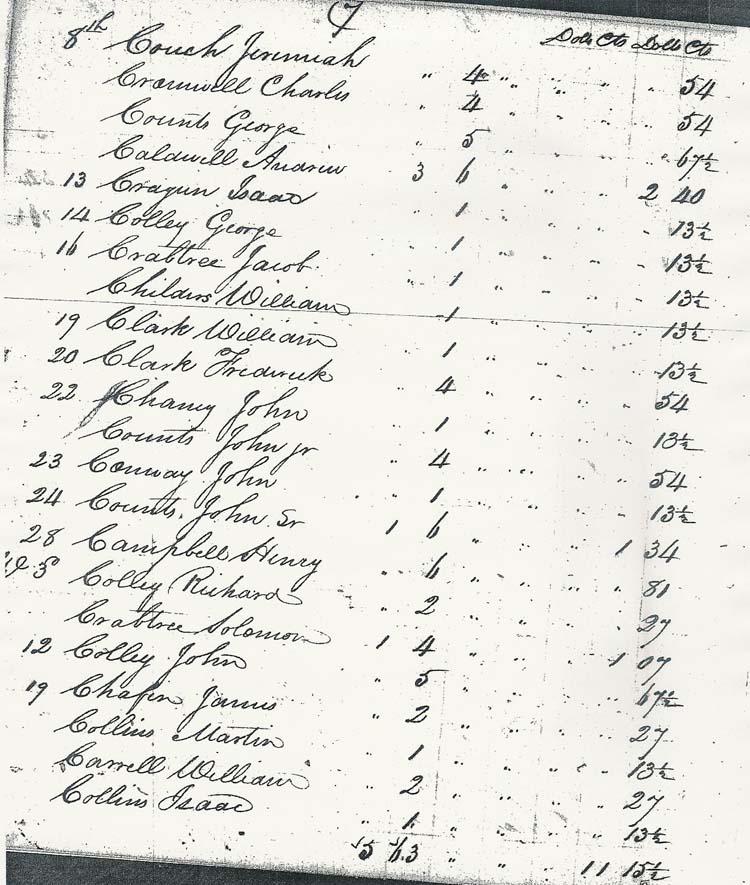 7
Dolls Cts Dolls Cts
8th Couch Jeremiah " 4 " " " " 54
Cromwell Charles " 4 " " " " 54
Counts George " 5 " " " " 67½
Caldwell Andrew 3 6 " " " 2 40
13 Cragun Isaac " 1 " " " " 13½
14 Colley George " 1 " " " " 13½
16 Crabtree Jacob " 1 " " " " 13½
Childers William " 1 " " " " 13½
19 Clark William " 1 " " " " 13½
20 Clark Frederick " 4 " " " " 54
22 Chaney John " 1 " " " " 13½
Counts John jr " 4 " " " " 54
23 Conway John " 1 " " " " 13½
24 Counts John Sr 1 6 " " " 1 34
28 Campbell Henry " 6 " " " " 81
5 Colley Richard " 2 " " " " 27
Crabtree Solomon 1 4 " " " 1 07
12 Colley John " 5 " " " " 67½
19 Chafin James " 2 " " " " 27
Collins Martin " 1 " " " " 13½
Carrell William " 2 " " " " 27
Collins Isaac " 1 " " " " 13½
5 63 " " 11 15½